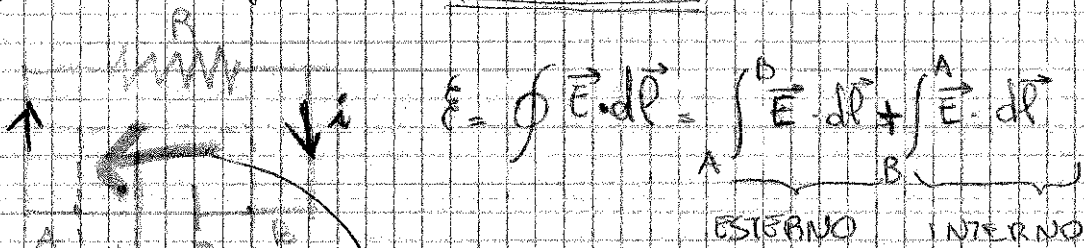 R
i
ξ = ∮ E⃗ · dl⃗ = ∫_A^B E⃗ · dl⃗ + ∫_B^A E⃗ · dl⃗
ESTERNO INTERNO
A